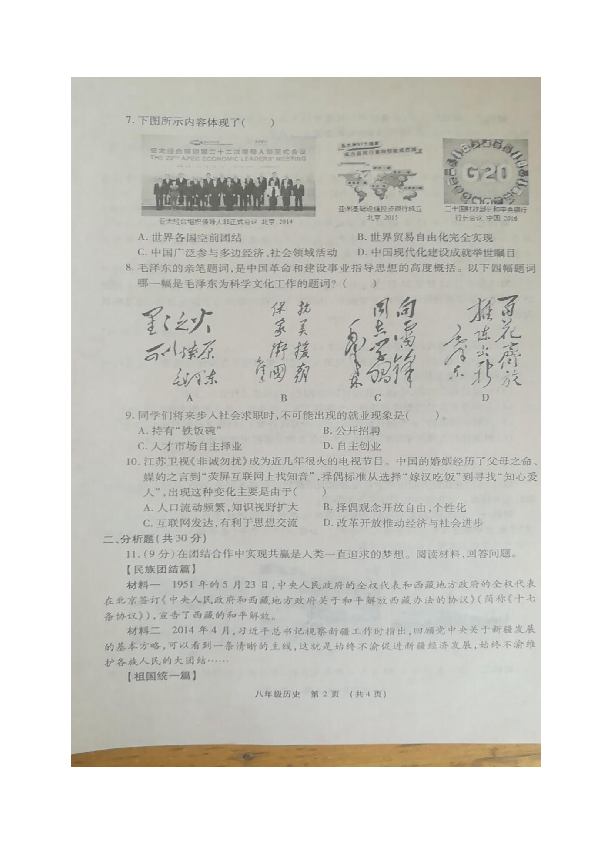 7. 下图所示内容体现了(　　)
亚太经合组织第二十二次领导人非正式会议
THE 22ND APEC ECONOMIC LEADERS' MEETING
G20
亚太经合组织领导人非正式会议 北京, 2014
亚洲基础设施投资银行成立
北京 2015
二十国集团财长和央行
行长会议 中国, 2016
A. 世界各国空前团结
B. 世界贸易自由化完全实现
C. 中国广泛参与多边经济、社会领域活动
D. 中国现代化建设成就举世瞩目
8. 毛泽东的亲笔题词,是中国革命和建设事业指导思想的高度概括。以下四幅题词
哪一幅是毛泽东为科学文化工作的题词? (　　)
星星之火
可以燎原
毛泽东
抗美援朝
保家卫国
向雷锋
同志学习
毛泽东
百花齐放
推陈出新
毛泽东
A
B
C
D
9. 同学们将来步入社会求职时,不可能出现的就业现象是(　　)。
A. 持有“铁饭碗”
B. 公开招聘
C. 人才市场自主择业
D. 自主创业
10. 江苏卫视《非诚勿扰》成为近几年很火的电视节目。中国的婚姻经历了父母之命、
媒妁之言到“荧屏互联网上找知音”,择偶标准从选择“嫁汉吃饭”到寻找“知心爱
人”,出现这种变化主要是由于(　　)
A. 人口流动频繁,知识视野扩大
B. 择偶观念开放自由,个性化
C. 互联网发达,有利于思想交流
D. 改革开放推动经济与社会进步
二、分析题(共 30 分)
11. (9 分)在团结合作中实现共赢是人类一直追求的梦想。阅读材料,回答问题。
【民族团结篇】
材料一　1951 年的 5 月 23 日,中央人民政府的全权代表和西藏地方政府的全权代表
在北京签订《中央人民政府和西藏地方政府关于和平解放西藏办法的协议》(简称《十七
条协议》),宣告了西藏的和平解放。
材料二　2014 年 4 月,习近平总书记视察新疆工作时指出,回顾党中央关于新疆发展
的基本方略,可以看到一条清晰的主线,这就是始终不渝促进新疆经济发展,始终不渝维
护各族人民的大团结……
【祖国统一篇】
八年级历史　第 2 页　(共 4 页)